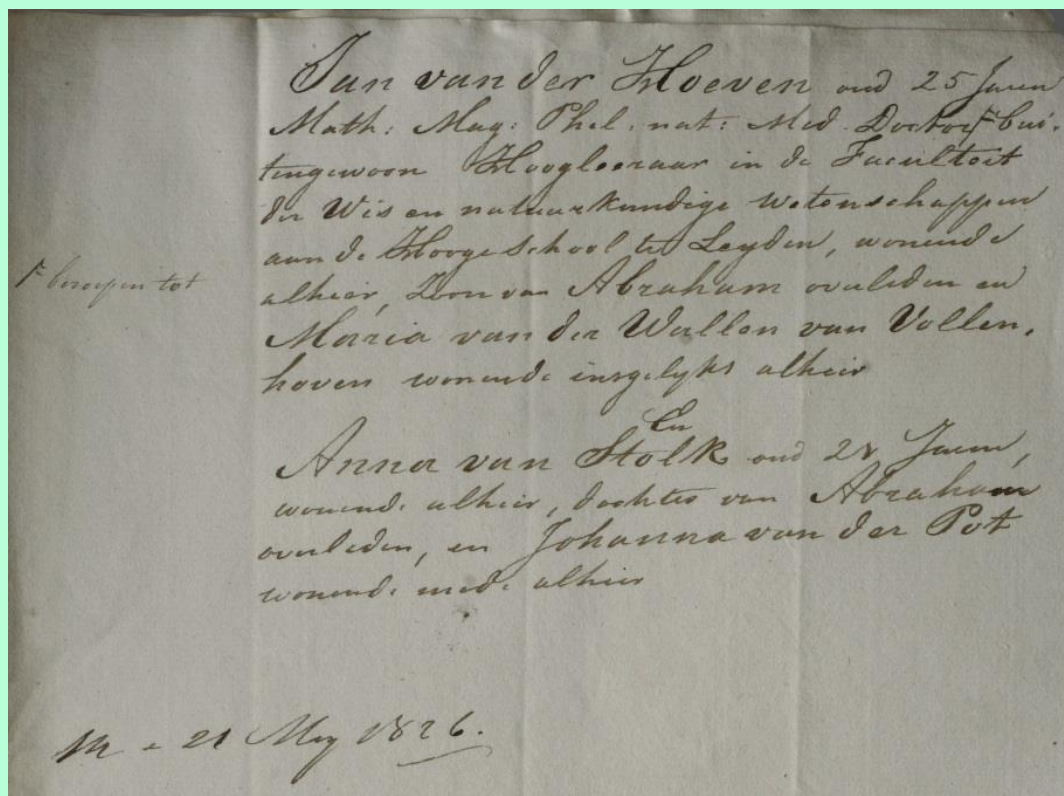 Jan van der Hoeven oud 25 Jaren
Math: Mag: Phil. nat: Med. Doctor bui-
tengewoon Hoogleeraar in de Faculteit
der Wis en natuurkundige wetenschappen
aan de Hooge School te Leyden, wonende
beroepen tot
alhier, Zoon van Abraham overleden en
Maria van der Wallen van Vollen-
hoven wonende insgelyks alhier
En
Anna van Stolk oud 28 Jaren,
wonende alhier, dochter van Abraham
overleden, en Johanna van der Pot
wonende mede alhier
21 Mey 1826.